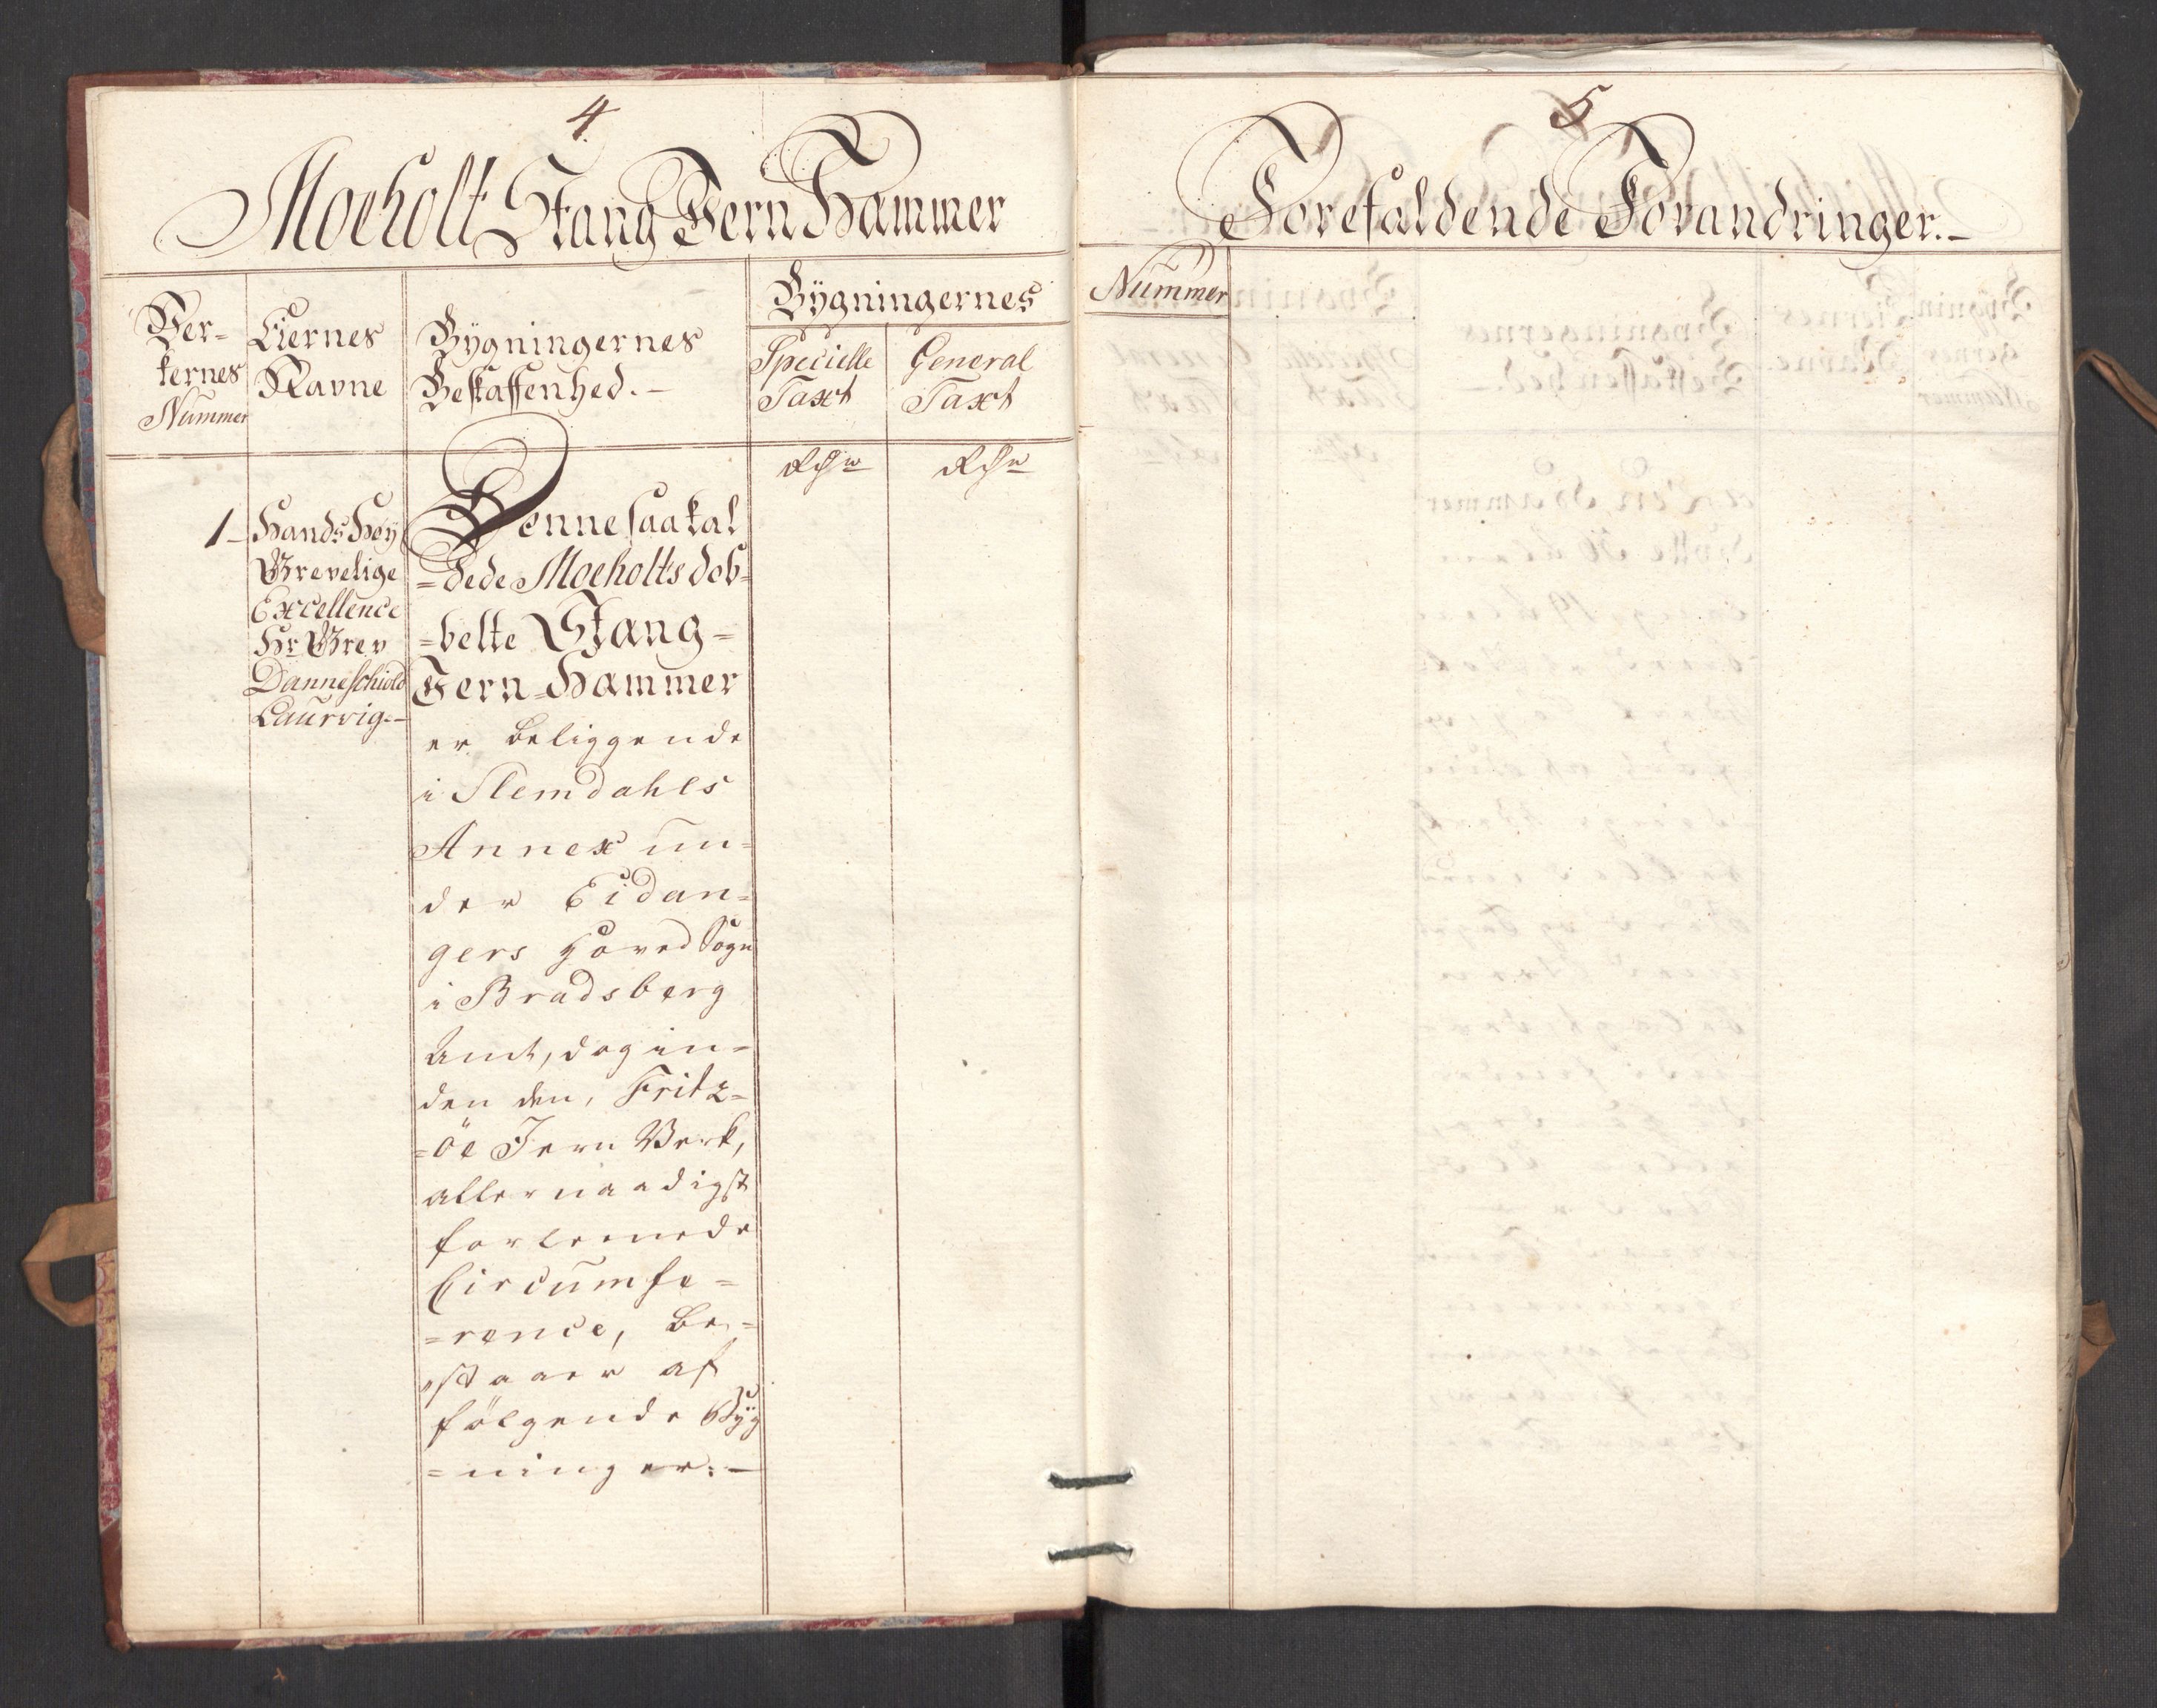 4
Moeholt Stang Jern Hammer
Ver-
kernes
Nummer
Eiernes
Navne
Bygningernes
Beskaffenhed.-
Bygningernes
Specielle
Taxt
General
Taxt
Rdlr
Rdlr
1-
Hands Høy
Grevelige
Excellence
Hr Grev
Danneschiold
Laurvig.-
Denne saakal
=dede Moeholts dob=
=belte Stang=
Jern=Hammer
er beliggende
i Slemdahls
Annex un=
der Eidan=
gers Hoved Sogn
i Bradsberg
Amt, dog in=
den den, Fritz=
=öe Jern Verk,
allernaadigst
forleenede
Circumfe=
=rence, be=
staaer af
følgende Byg
=ninger:-
5
Forefaldende Forandringer.-
Nummer